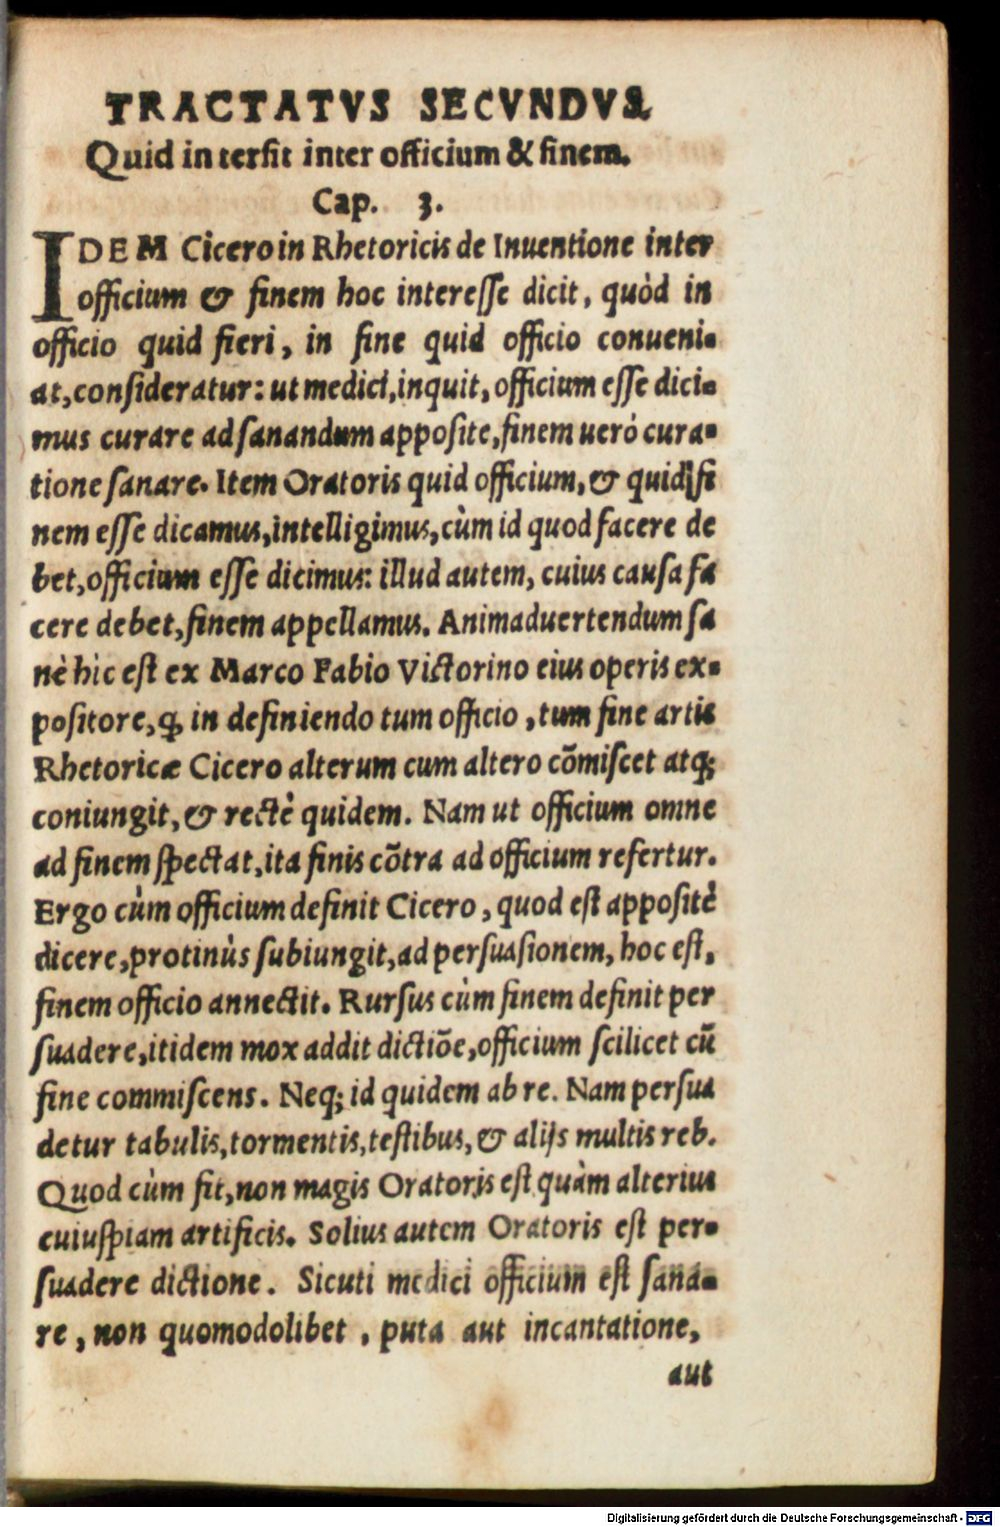 TRACTATVS SECVNDVS.
Quid intersit inter officium & finem.
Cap. 3.
IDEM Cicero in Rhetoricis de Inuentione inter
officium & finem hoc interesse dicit, quòd in
officio quid fieri, in fine quid officio conueni-
at, consideratur: ut medici, inquit, officium esse dici-
mus curare ad sanandum apposite, finem uerò cura-
tione sanare. Item Oratoris quid officium, & quid fi
nem esse dicamus, intelligimus, cùm id quod facere de
bet, officium esse dicimus: illud autem, cuius causa fa
cere debet, finem appellamus. Animaduertendum sa
nè hîc est ex Marco Fabio Victorino eius operis ex-
positore, ꝙ in definiendo tum officio, tum fine artis
Rhetoricæ Cicero alterum cum altero cõmiscet atq;
coniungit, & rectè quidem. Nam ut officium omne
ad finem spectat, ita finis cõtra ad officium refertur.
Ergo cùm officium definit Cicero, quod est appositè
dicere, protinùs subiungit, ad persuasionem, hoc est,
finem officio annectit. Rursus cùm finem definit per
suadere, itidem mox addit dictiõe, officium scilicet cũ
fine commiscens. Neq; id quidem ab re. Nam persua
detur tabulis, tormentis, testibus, & alijs multis reb.
Quod cùm fit, non magis Oratoris est quàm alterius
cuiuspiam artificis. Solius autem Oratoris est per-
suadere dictione. Sicuti medici officium est sana-
re, non quomodolibet, puta aut incantatione,
aut
Digitalisierung gefördert durch die Deutsche Forschungsgemeinschaft - DFG